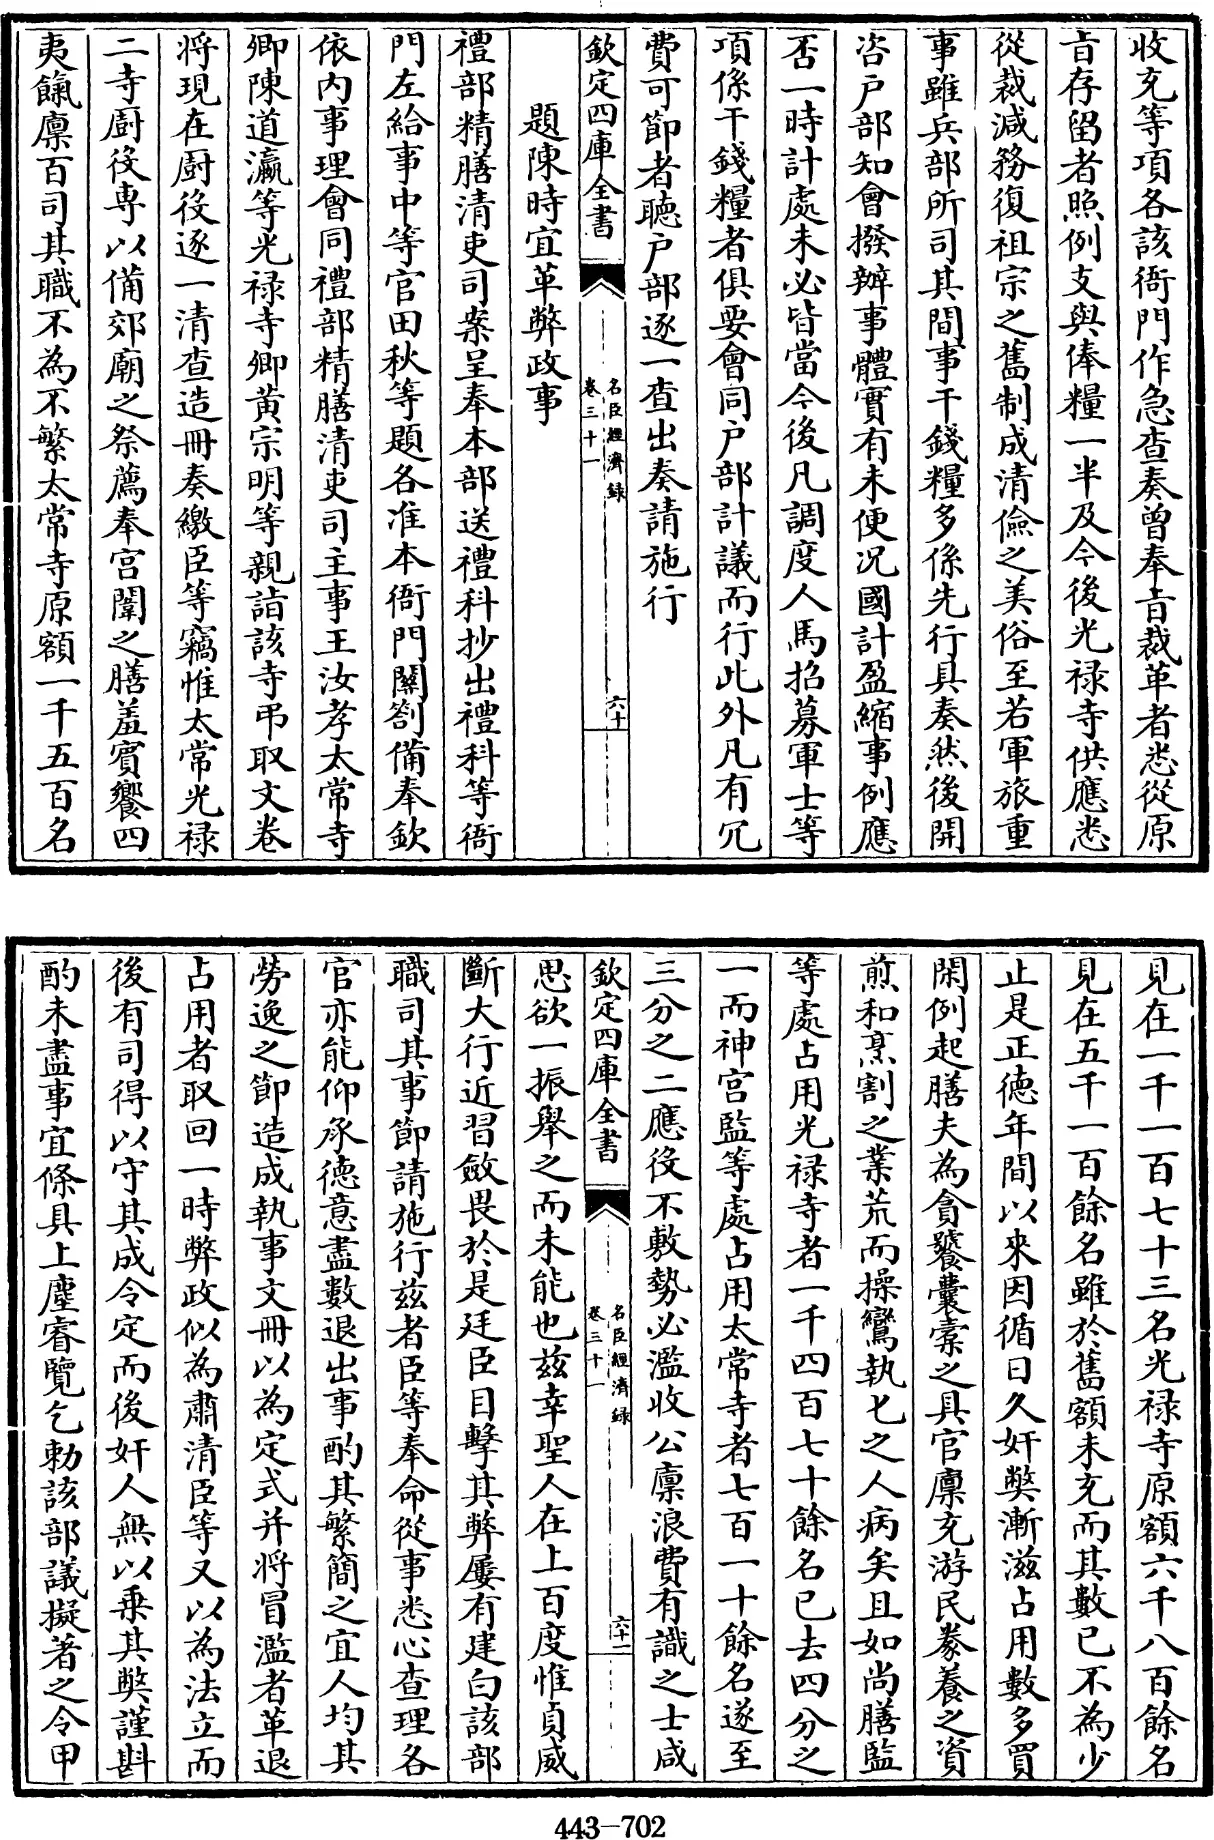 收充等項各該衙門作急查奏曾奉㫖裁革者悉從原
㫖存留者照例支與俸糧一半及今後光禄寺供應悉
從裁減務復祖宗之舊制成清儉之美俗至若軍旅重
事雖兵部所司其間事干錢糧多係先行具奏然後開
咨户部知會撥辦事體實有未便况國計盈縮事例應
否一時計處未必皆當今後凡調度人馬招募軍士等
項係干錢糧者俱要會同户部計議而行此外凡有冗
費可節者聽户部逐一查出奏請施行
欽定四庫全書
名臣經濟録
卷三十一
六十
題陳時宜革弊政事
禮部精膳清吏司案呈奉本部送禮科抄出禮科等衙
門左給事中等官田秋等題各准本衙門關劄備奉欽
依内事理會同禮部精膳清吏司主事王汝孝太常寺
卿陳道瀛等光禄寺卿黄宗明等親詣該寺弔取文卷
將現在厨役逐一清查造冊奏繳臣等竊惟太常光禄
二寺厨役専以備郊廟之祭薦奉宫闈之膳羞賓饗四
夷餼廩百司其職不為不繁太常寺原額一千五百名
見在一千一百七十三名光禄寺原額六千八百餘名
見在五千一百餘名雖於舊額未充而其數已不為少
止是正德年間以來因循日久奸獘漸滋占用數多買
閑例起膳夫為貪饕囊槖之具官廪充游民豢養之資
煎和烹割之業荒而操鸞執匕之人病矣且如尚膳監
等處占用光禄寺者一千四百七十餘名已去四分之
一而神宫監等處占用太常寺者七百一十餘名遂至
三分之二應役不敷勢必濫收公廪浪費有識之士咸
欽定四庫全書
名臣經濟録
卷三十一
六十一
思欲一振舉之而未能也兹幸聖人在上百度惟貞威
斷大行近習斂畏於是廷臣目擊其弊屢有建白該部
職司其事節請施行兹者臣等奉命從事悉心查理各
官亦能仰承德意盡數退出事酌其繁簡之宜人均其
勞逸之節造成執事文冊以為定式并將冒濫者革退
占用者取回一時弊政似為肅清臣等又以為法立而
後有司得以守其成令定而後奸人無以乗其獘謹斟
酌未盡事宜條具上塵睿覽乞勅該部議擬著之令甲
443-702